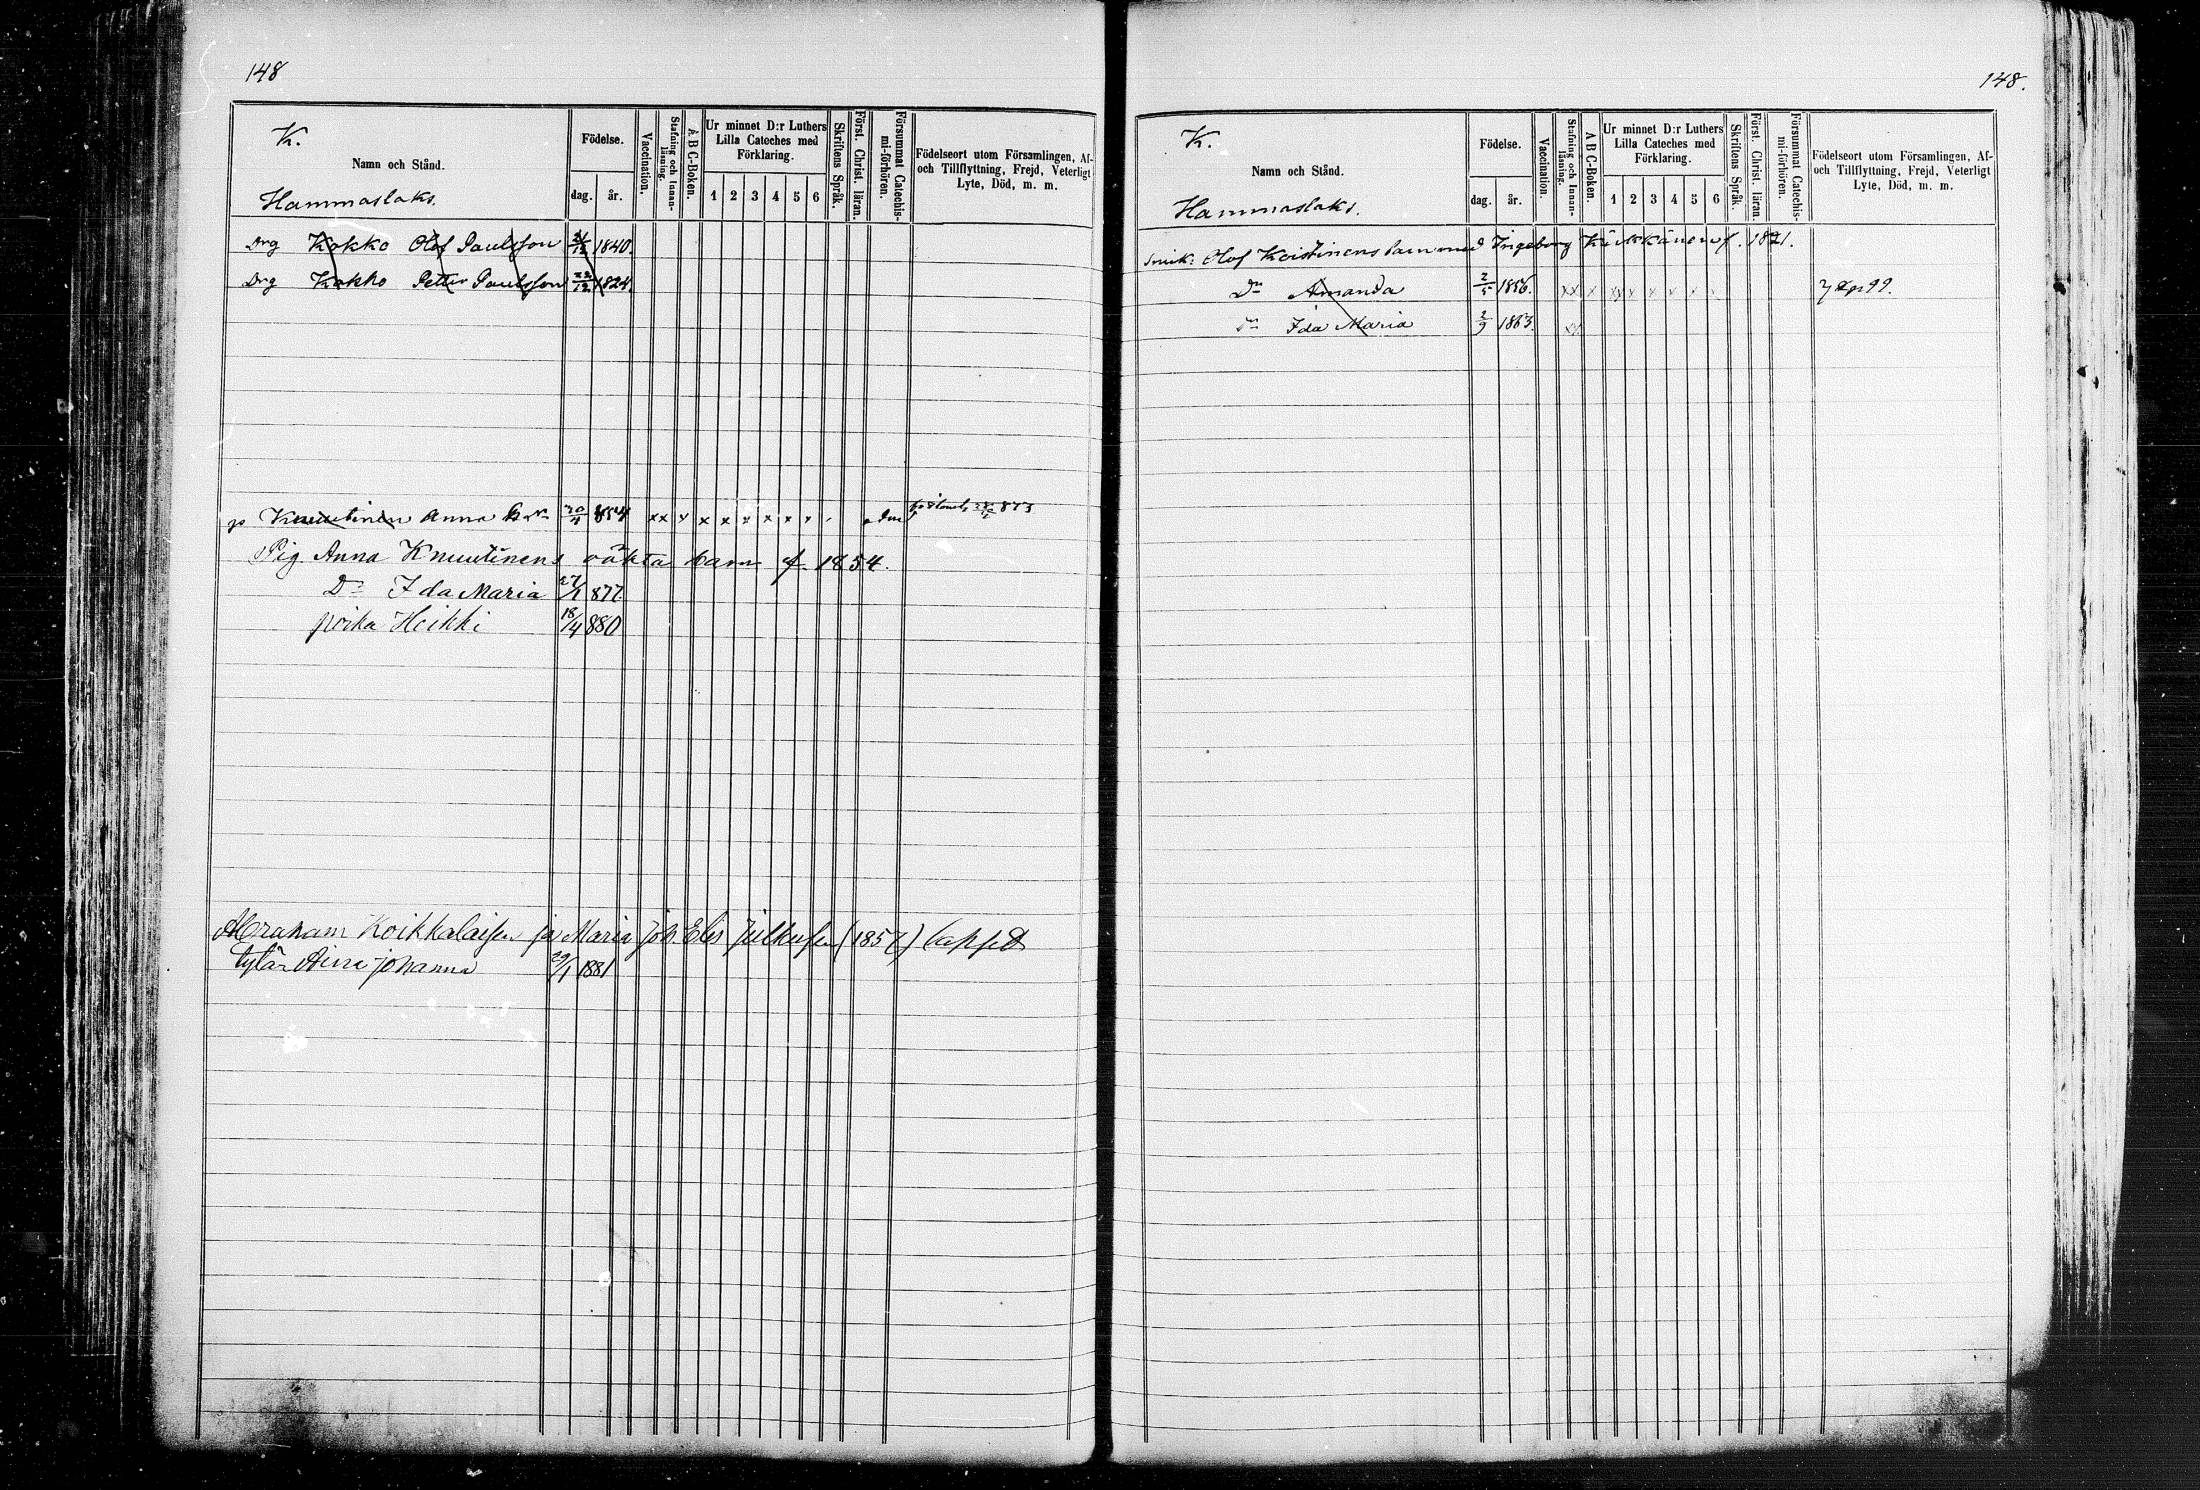 148
K.
Namn och Stånd.
Hammaslaks.
Födelse.
dag. år.
Vaccination.
Stafning och Innan-läsning.
A B C-Boken.
Ur minnet D:r Luthers Lilla Cateches med Förklaring.
1 2 3 4 5 6
Skriftens Språk.
Först. Christ. läran.
Försummat Catechis-mi-förhören.
Födelseort utom Församlingen, Af- och Tillflyttning, Frejd, Veterligt Lyte, Död, m. m.
Drg Kokko Olof Paulsson 1840.
Drg Kokko Petter Paulsson 22/12 1824.
Knuutinen Anna 854 xx x x x x x x x 873
Pig Anna Knuutinens oäkta barn f. 1854.
Dr Ida Maria 27/1 877.
poika Heikki 18/4 880
Abraham Koikkalaisen ja Maria Joh Elis Julkusen (1857) lapset
tytär Aina Johanna 29/1 1881
148.
K.
Namn och Stånd.
Hammaslaks.
Födelse.
dag. år.
Vaccination.
Stafning och Innan-läsning.
A B C-Boken.
Ur minnet D:r Luthers Lilla Cateches med Förklaring.
1 2 3 4 5 6
Skriftens Språk.
Först. Christ. läran.
Försummat Catechis-mi-förhören.
Födelseort utom Församlingen, Af- och Tillflyttning, Frejd, Veterligt Lyte, Död, m. m.
Olof Koistinens barn med Ingeborg f. 1821.
Dr Amanda 2/5 1856. xx x xx x x x x x
Dr Ida Maria 2/9 1863. xx